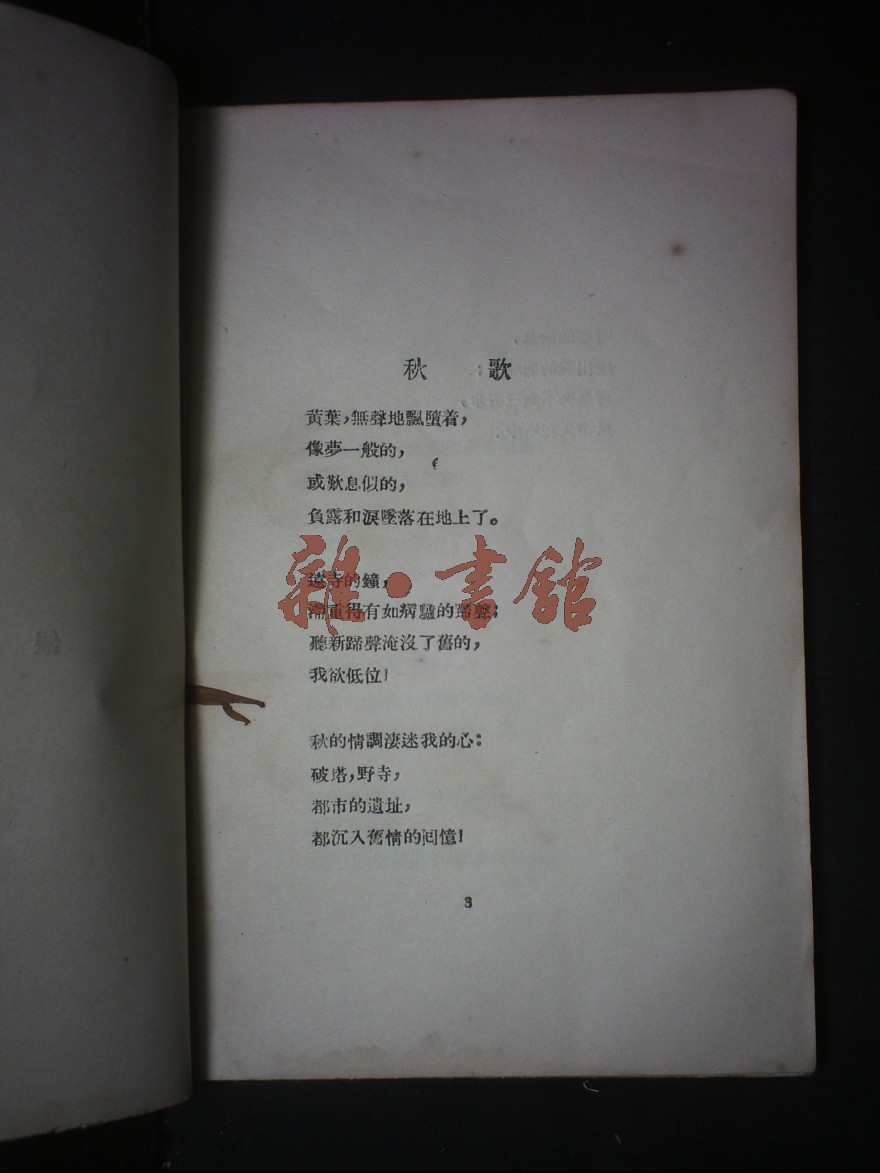 秋　歌
黃葉，無聲地飄墮着，
像夢一般的，
或歎息似的，
負露和淚墜落在地上了。
遠寺的鐘，
滯重得有如病驢的蹄聲；
雜·書館
聽新蹄聲淹沒了舊的，
我欲低位！
秋的情調淒迷我的心：
破塔，野寺，
都市的遺址，
都沉入舊情的囘憶！
3